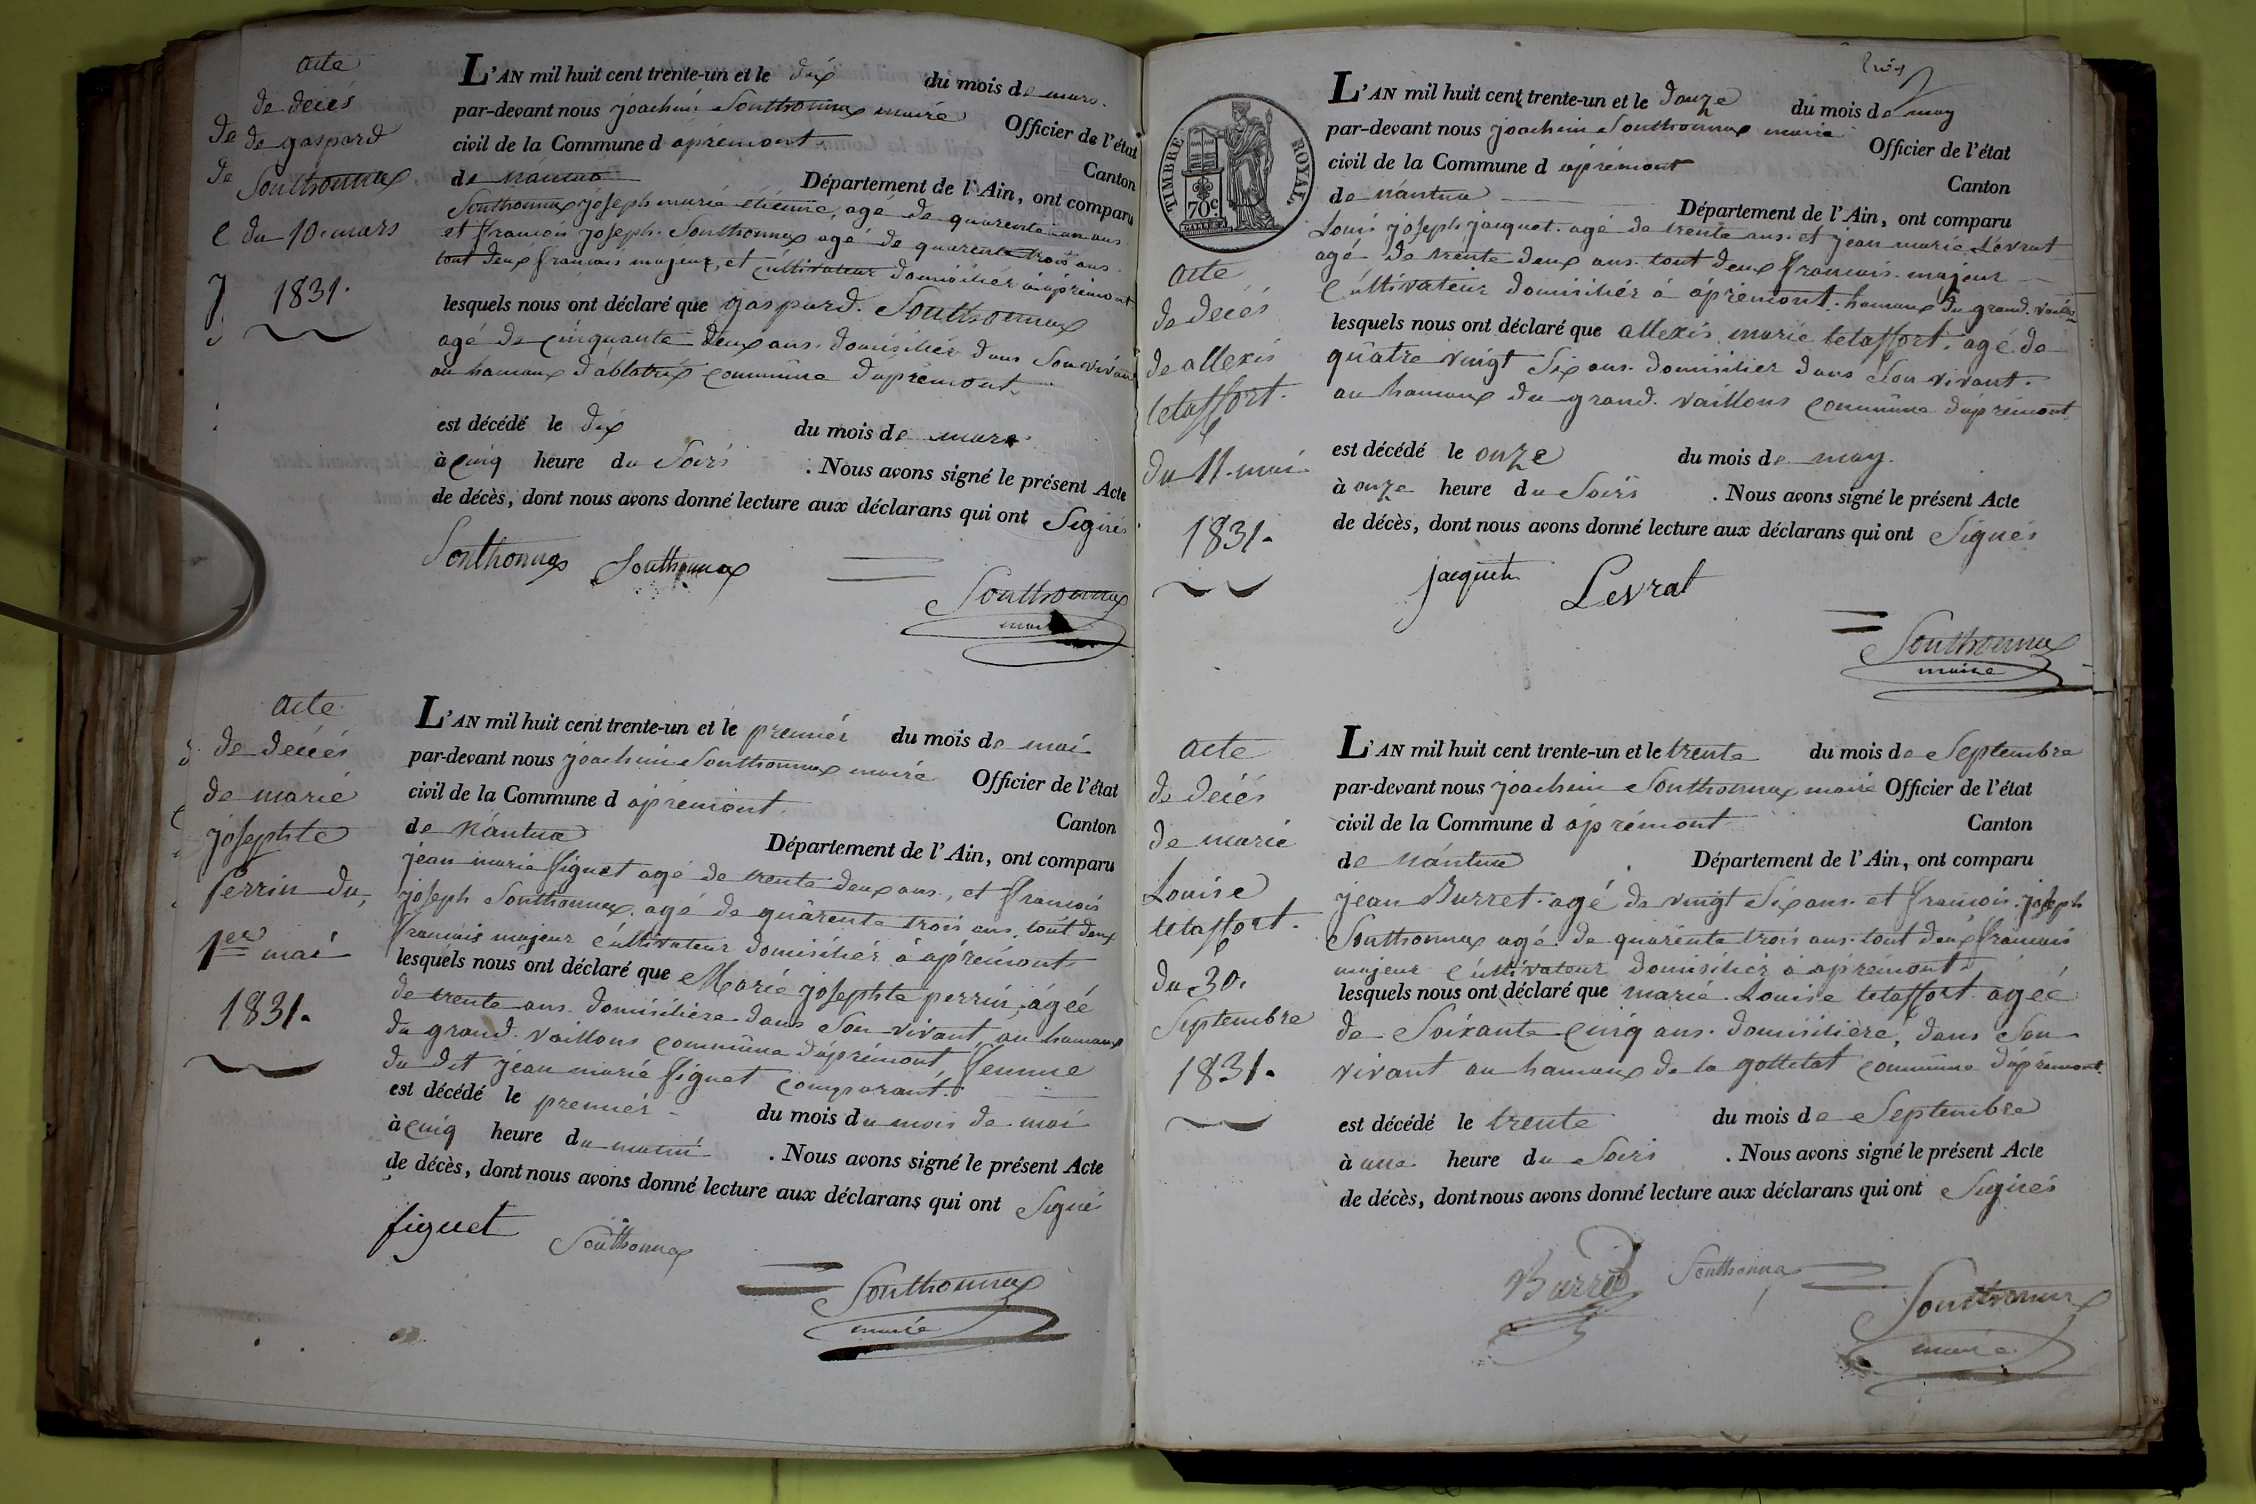 acte
de décés
de gaspard
Sonthonnax
du 10. mars
1831.
L'AN mil huit cent trente-un et le dix du mois de mars.
par-devant nous joachim Sonthonnax maire Officier de l'état
civil de la Commune d apremont. Canton
de nantua Département de l'Ain, ont comparu
Sonthonnax joseph marie étienne, agé de quarente un ans
et francois joseph. Sonthonnax agé de quarente trois ans.
tout deux francais majeur, et cultivateur domicilier à apremont
lesquels nous ont déclaré que gaspard. Sonthonnax
agé de cinquante deux ans. domicilier dans son vivant
au hamaux d'ablatrix commune d'apremont.
est décédé le dix du mois de mars
à cinq heure du soirs . Nous avons signé le présent Acte
de décès, dont nous avons donné lecture aux déclarans qui ont signés
Sonthonnax Sonthonnax
Sonthonnax
maire
acte
de décés
de marie
josephte
Perrin du,
1er mai
1831.
L'AN mil huit cent trente-un et le premier du mois de mai
par-devant nous joachim Sonthonnax maire Officier de l'état
civil de la Commune d apremont. Canton
de Nantua Département de l'Ain, ont comparu
jean marie figuet agé de trente deux ans, et francois
joseph Sonthonnax. agé de quarente trois ans. tout deux
francais majeur cultivateur domicilier à apremont
lesquels nous ont déclaré que Marie josephte perrin, ageé
de trente ans. domiciliere dans son vivant au hamaux
du grand. vaillons commune d'apremont, femme
du dit jean marie figuet comparant.
est décédé le premier du mois du mois de mai
à cinq heure du matin . Nous avons signé le présent Acte
de décès, dont nous avons donné lecture aux déclarans qui ont signé
figuet Sonthonnax
Sonthonnax
maire
TIMBRE ROYAL
70 c.
acte
de décés
de allexis
tetaffort.
du 11. mai
1831.
L'AN mil huit cent trente-un et le douze du mois de may
par-devant nous joachim Sonthonnax maire Officier de l'état
civil de la Commune d apremont Canton
de nantua Département de l'Ain, ont comparu
Louis joseph jacquet. agé de trente ans. et jean marie Levrat
agé de trente deux ans. tout deux francais. majeur
cultivateur domicilier à apremont. hamaux du grand.
lesquels nous ont déclaré que allexis marie tetaffort, agé de
quatre vingt six ans. domicilier dans son vivant.
au hamaux du grand. vaillons commune d'apremont.
est décédé le onze du mois de may.
à onze heure du soirs . Nous avons signé le présent Acte
de décès, dont nous avons donné lecture aux déclarans qui ont signés
jacquet Levrat
Sonthonnax
maire
acte
de décés
de marie
Louise
tetaffort.
du 30.
septembre
1831.
L'AN mil huit cent trente-un et le trente du mois de septembre
par-devant nous joachim Sonthonnax maire Officier de l'état
civil de la Commune d apremont Canton
de nantua Département de l'Ain, ont comparu
jean Burret. agé de vingt six ans. et francois. joseph
Sonthonnax agé. de quarente trois ans. tout deux francais
majeur cultivateur domicilier à apremont.
lesquels nous ont déclaré que marie. Louise tetaffort ageé
de soixante cinq ans. domiciliere, dans son
vivant au hamaux de la gottetat commune d'apremont.
est décédé le trente du mois de septembre
à une heure du soirs . Nous avons signé le présent Acte
de décès, dont nous avons donné lecture aux déclarans qui ont signés
Burret Sonthonnax
Sonthonnax
maire